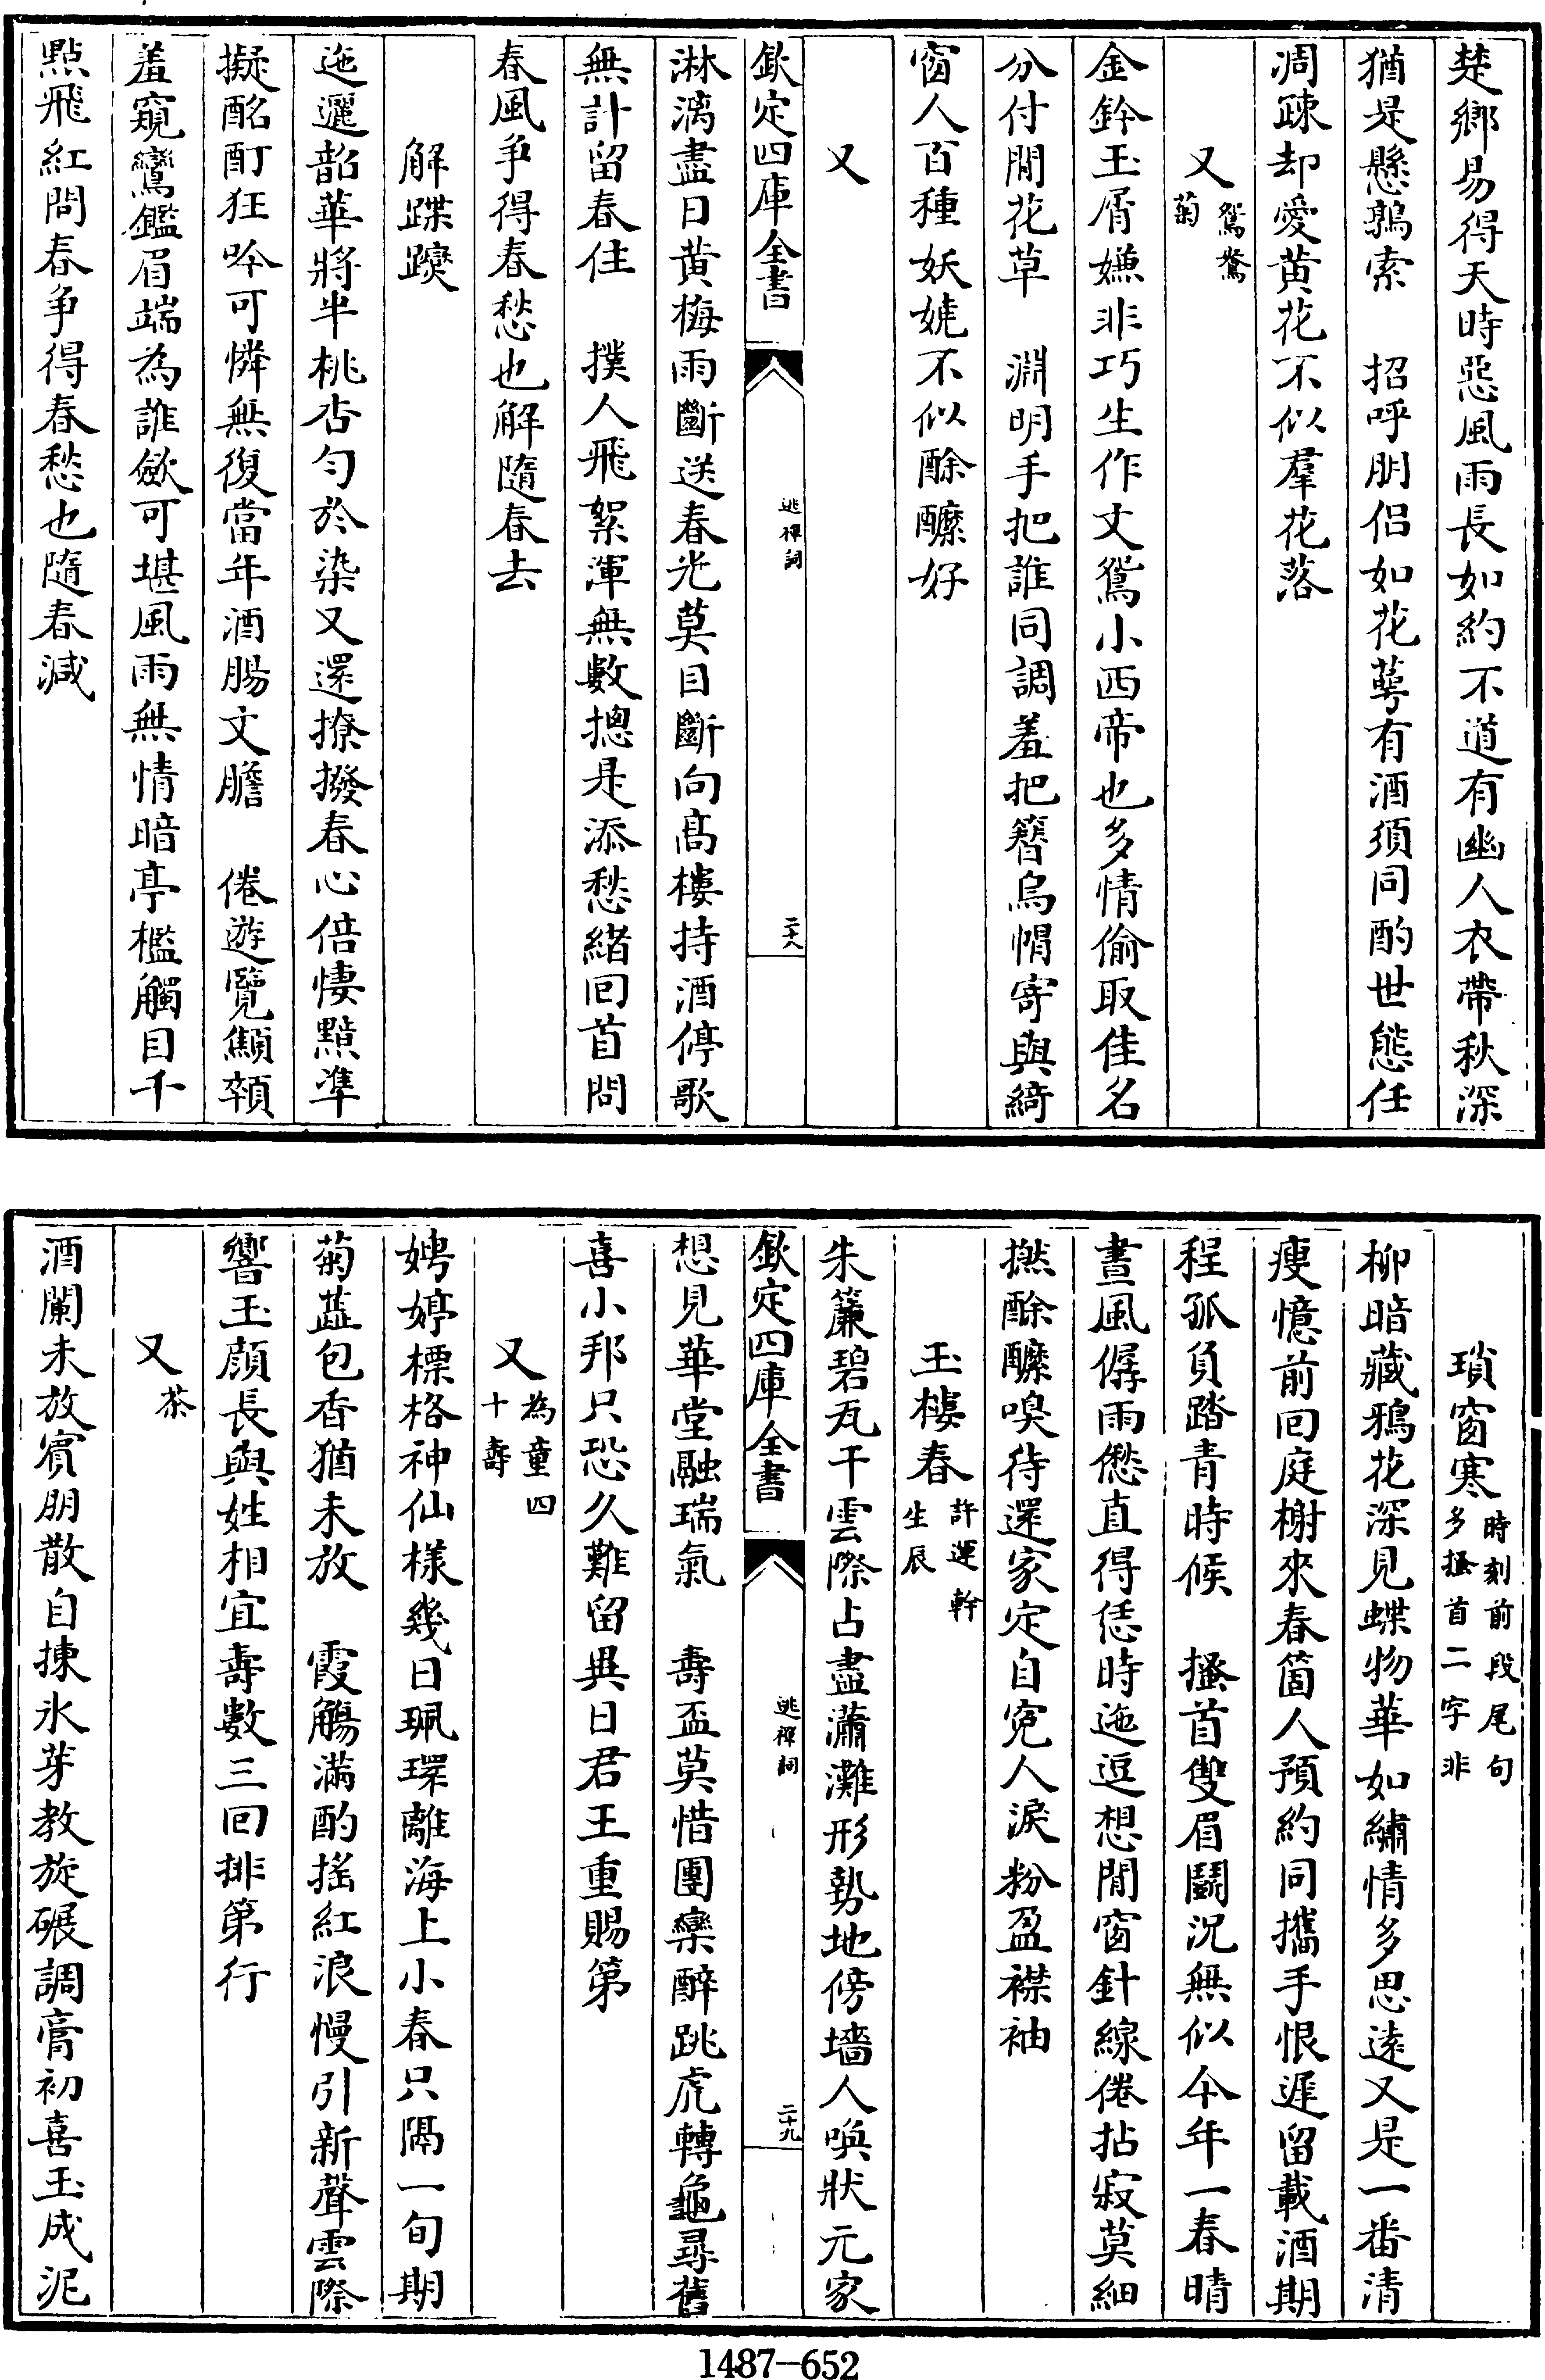 楚鄉易得天時惡風雨長如約不道有幽人衣帶秋深
猶是懸鶉索　招呼朋侣如花萼有酒須同酌世態任
凋踈却愛黄花不似羣花落
又鴛鴦菊
金鈐玉屑嫌非巧生作丈鴛小西帝也多情偷取佳名
分付閒花草　淵明手把誰同調羞把簮烏㡌寄與綺
窗人百種妖娆不似酴醿好
又
欽定四庫全書
逃禪詞
二十八
淋漓盡日黄梅雨斷送春光莫目斷向髙樓持酒停歌
無計留春住　撲人飛絮渾無數摠是添愁緒回首問
春風争得春愁也解隨春去
解蹀躞
迤邐韶華將半桃杏匀於染又還撩撥春心倍悽黯凖
擬酩酊狂吟可憐無復當年酒腸文膽　倦遊覽顦顇
羞窺鸞鑑眉端為誰斂可堪風雨無情暗亭檻觸目千
點飛紅問春争得春愁也隨春減
瑣窗寒時刻前段尾句多搔首二字非
柳暗藏鴉花深見蝶物華如繡情多思逺又是一番清
瘦憶前回庭榭來春箇人預約同攜手恨遲留載酒期
程孤負踏青時候　搔首雙眉鬭況無似今年一春晴
晝風僝雨僽直得恁時迤逗想閒窗針線倦拈寂莫細
撚酴醿嗅待還家定自寃人淚粉盈襟袖
玉樓春許運幹生辰
朱簾碧瓦干雲際占盡瀟灘形勢地傍墻人喚狀元家
欽定四庫全書
逃禪詞
二十九
想見華堂融瑞氣　壽盃莫惜團欒醉跳虎轉龜尋舊
喜小邦只恐久難留異日君王重賜第
又為童四十壽
娉婷標格神仙様幾日珮環離海上小春只隔一旬期
菊蘂包香猶未放　霞觴滿酌揺紅浪慢引新聲雲際
響玉顔長與姓相宜壽數三回排第行
又茶
酒闌未放賓朋散自揀氷芽教旋碾調膏初喜玉成泥
1487-652